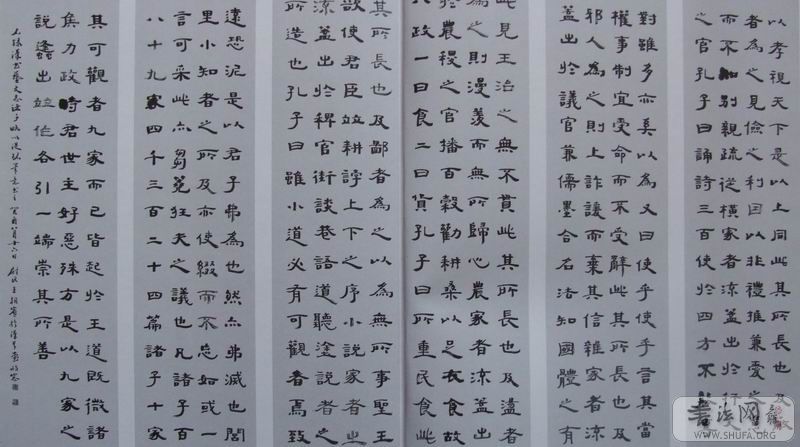 以孝視天下是以上同此其所長也及
者為之見儉之利因以非禮推兼愛
而不知別親疏從橫家者流蓋出於行
之官孔子曰誦詩三百使於四方不
對雖多亦奚以為又曰使乎使乎言其當
權事制宜受命而不受辭此其所長也及
邪人為之則上詐諼而棄其信雜家者流
蓋出於議官兼儒墨合名法知國體之有
此見王治之無不貫此其所長也及盪者
為之則漫羨而無所歸心農家者流蓋出
於農稷之官播百穀勸耕桑以足衣食故
八政一曰食二曰貨孔子曰所重民食此
其所長也及鄙者為之以為無所事聖王
欲使君臣竝耕誖上下之序小說家者
流蓋出於稗官街談巷語道聽塗說者之
所造也孔子曰雖小道必有可觀者焉致
遠恐泥是以君子弗為也然亦弗滅也閭
里小知者之所及亦使綴而不忘如或一
言可采此亦芻蕘狂夫之議也凡諸子百
八十九家四千三百二十四篇諸子十家
其可觀者九家而已皆起於王道既微諸
侯力政時君世主好惡殊方是以九家之
說蠭出竝作各引一端崇其所善
书法网
WWW.SHUFA.ORG